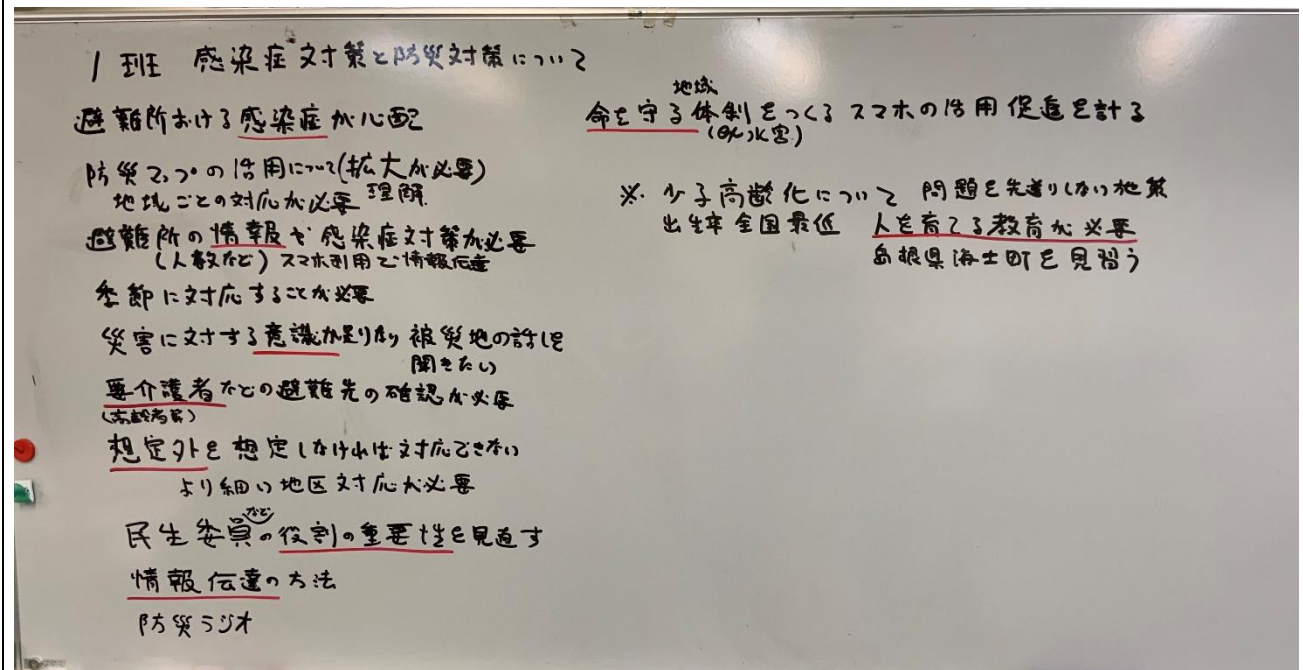 1班 感染症対策と防災対策について
避難所おける感染症が心配
防災マップの活用について(拡大が必要)
地域ごとの対応が必要 理解
避難所の情報や感染症対策が必要
(人数など) スマホ利用で情報伝達
季節に対応することが必要
災害に対する意識が足りない 被災地の話しを
聞きたい
要介護者などの避難先の確認が必要
(高齢者等)
想定外を想定しなければ対応できない
より細い地区対応が必要
民生委員などの役割の重要性を見直す
情報伝達の方法
防災ラジオ
地域
命を守る体制をつくる スマホの活用促進を計る
水害)
※ 少子高齢化について 問題を先送りしない施策
出生率全国最低 人を育てる教育が必要
島根県海士町を見習う